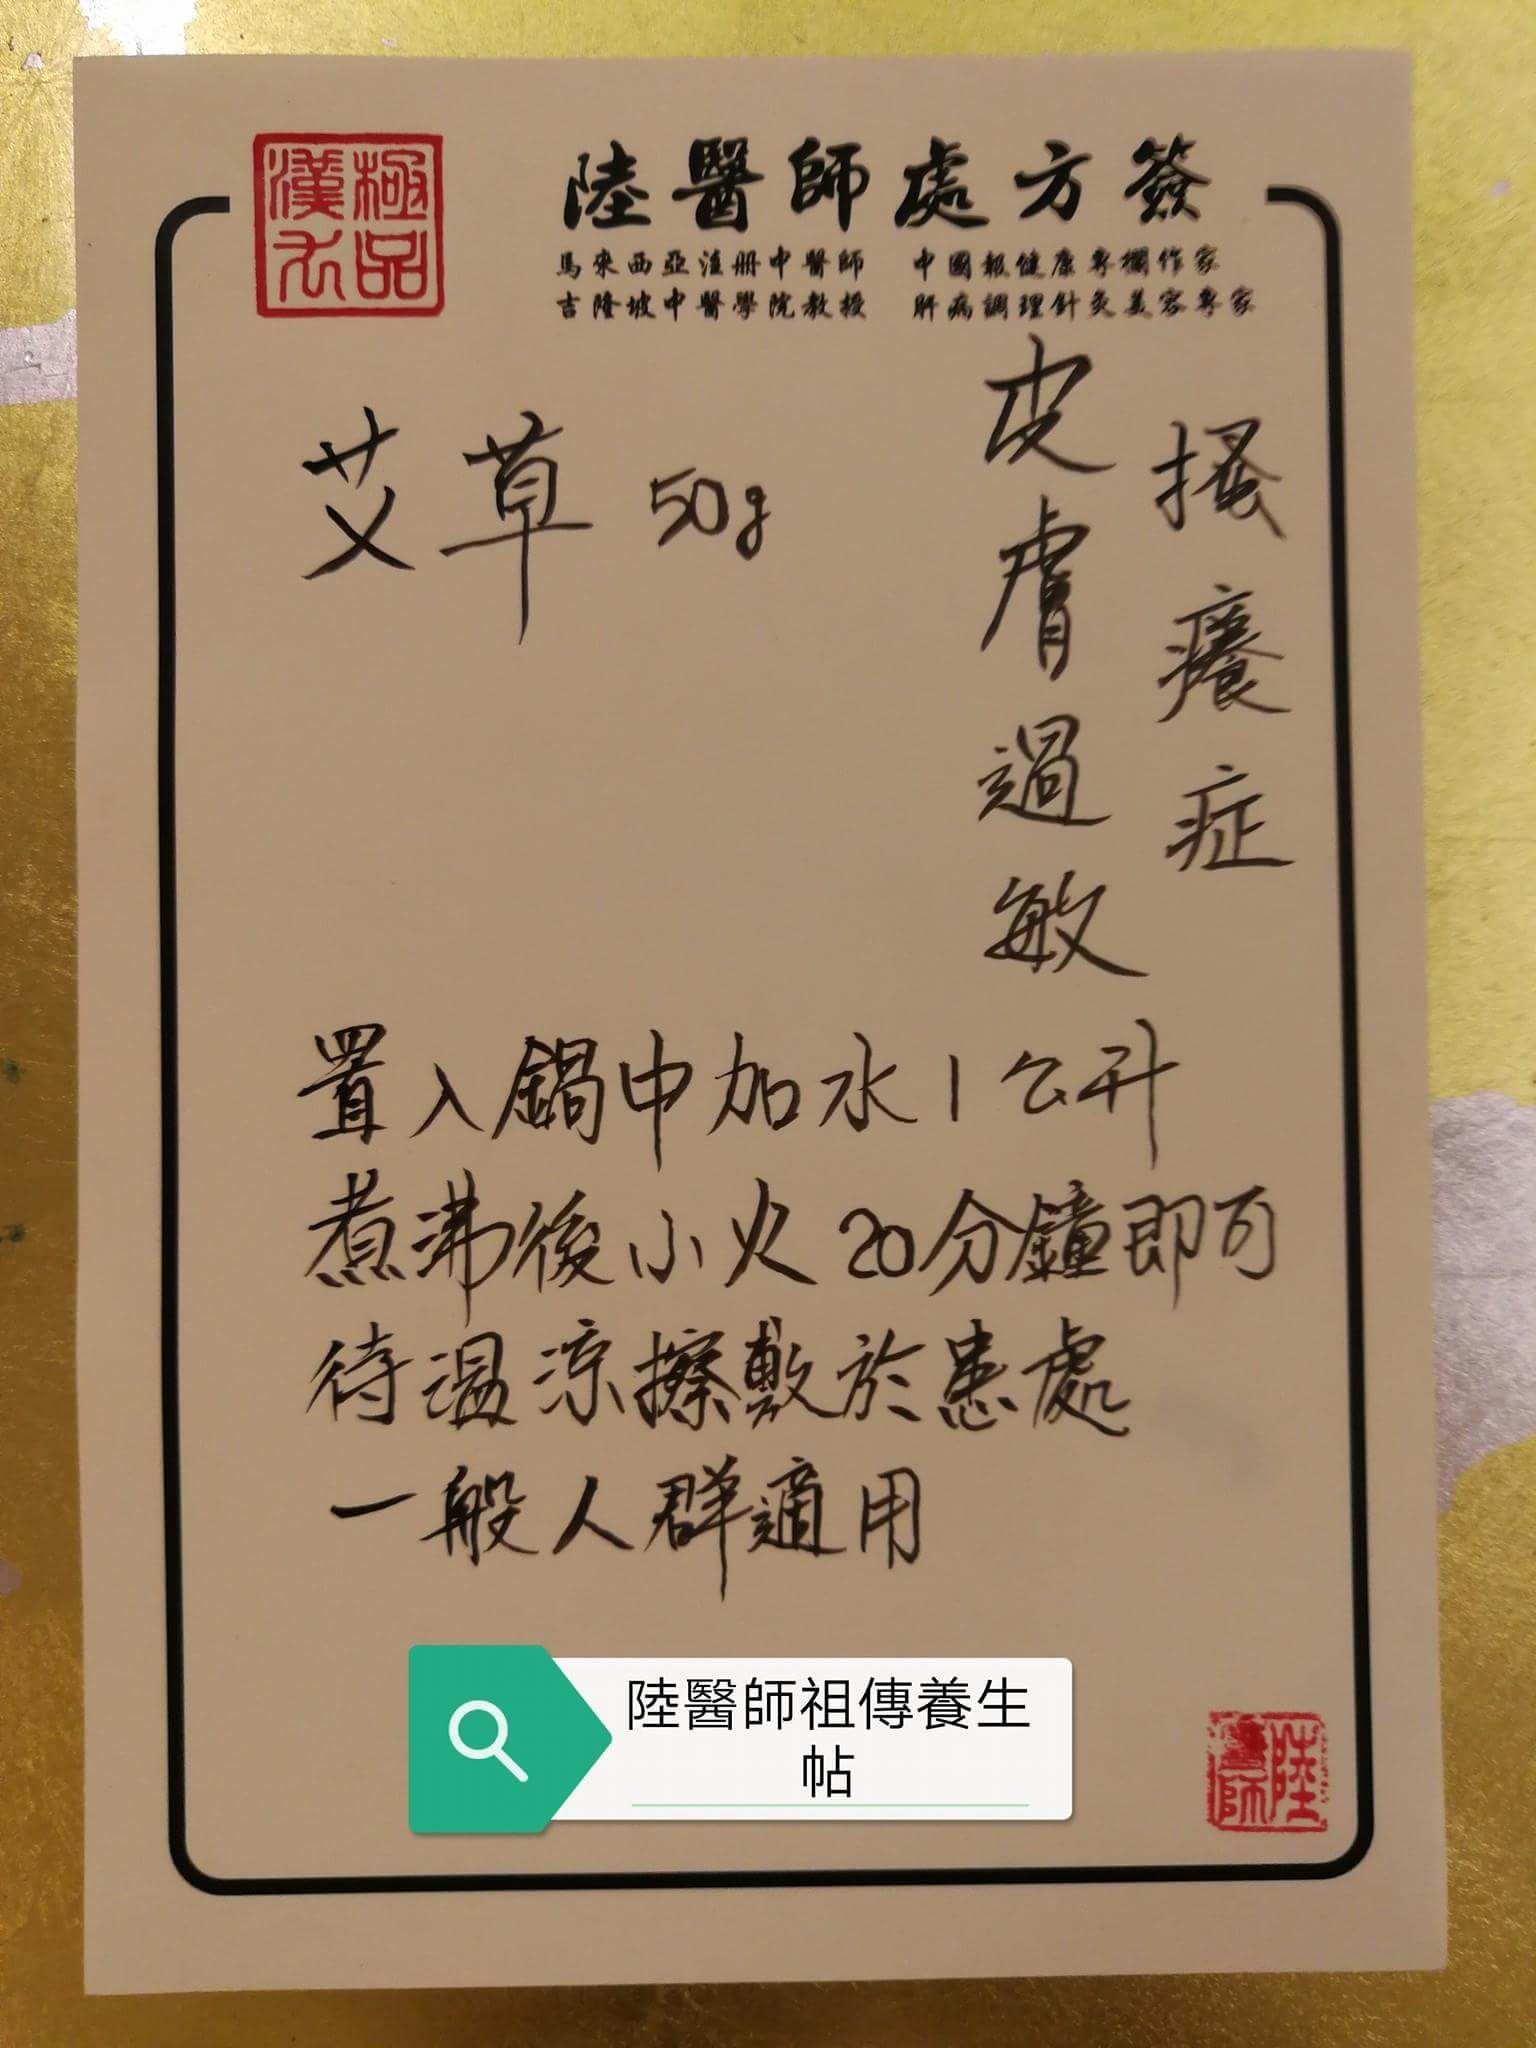 極品
漢方
陸醫師處方簽
馬來西亞註册中醫師 中國報健康專欄作家
吉隆坡中醫學院教授 肝病調理針灸美容專家
搔癢症
皮膚過敏
艾草 50g
置入鍋中加水1公升
煮沸後小火20分鐘即可
待溫涼擦敷於患處
一般人群適用
陸醫師祖傳養生
帖
陸醫師